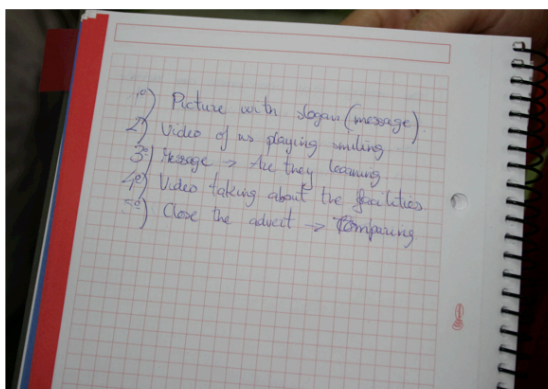 1º) Picture with slogan (message).
2) Video of us playing smiling
3º) Message → Are they learning
4º) Video taking about the facilities
5º) Close the advert → Comparing